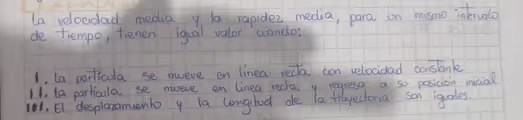 La velocidad media y la rapidez media, para un mismo intervalo
de tiempo, tienen igual valor cuando:
I. La partícula se mueve en línea recta con velocidad constante
II. La partícula se mueve en línea recta y regresa a su posición inicial
III. El desplazamiento y la longitud de la trayectoria son iguales.